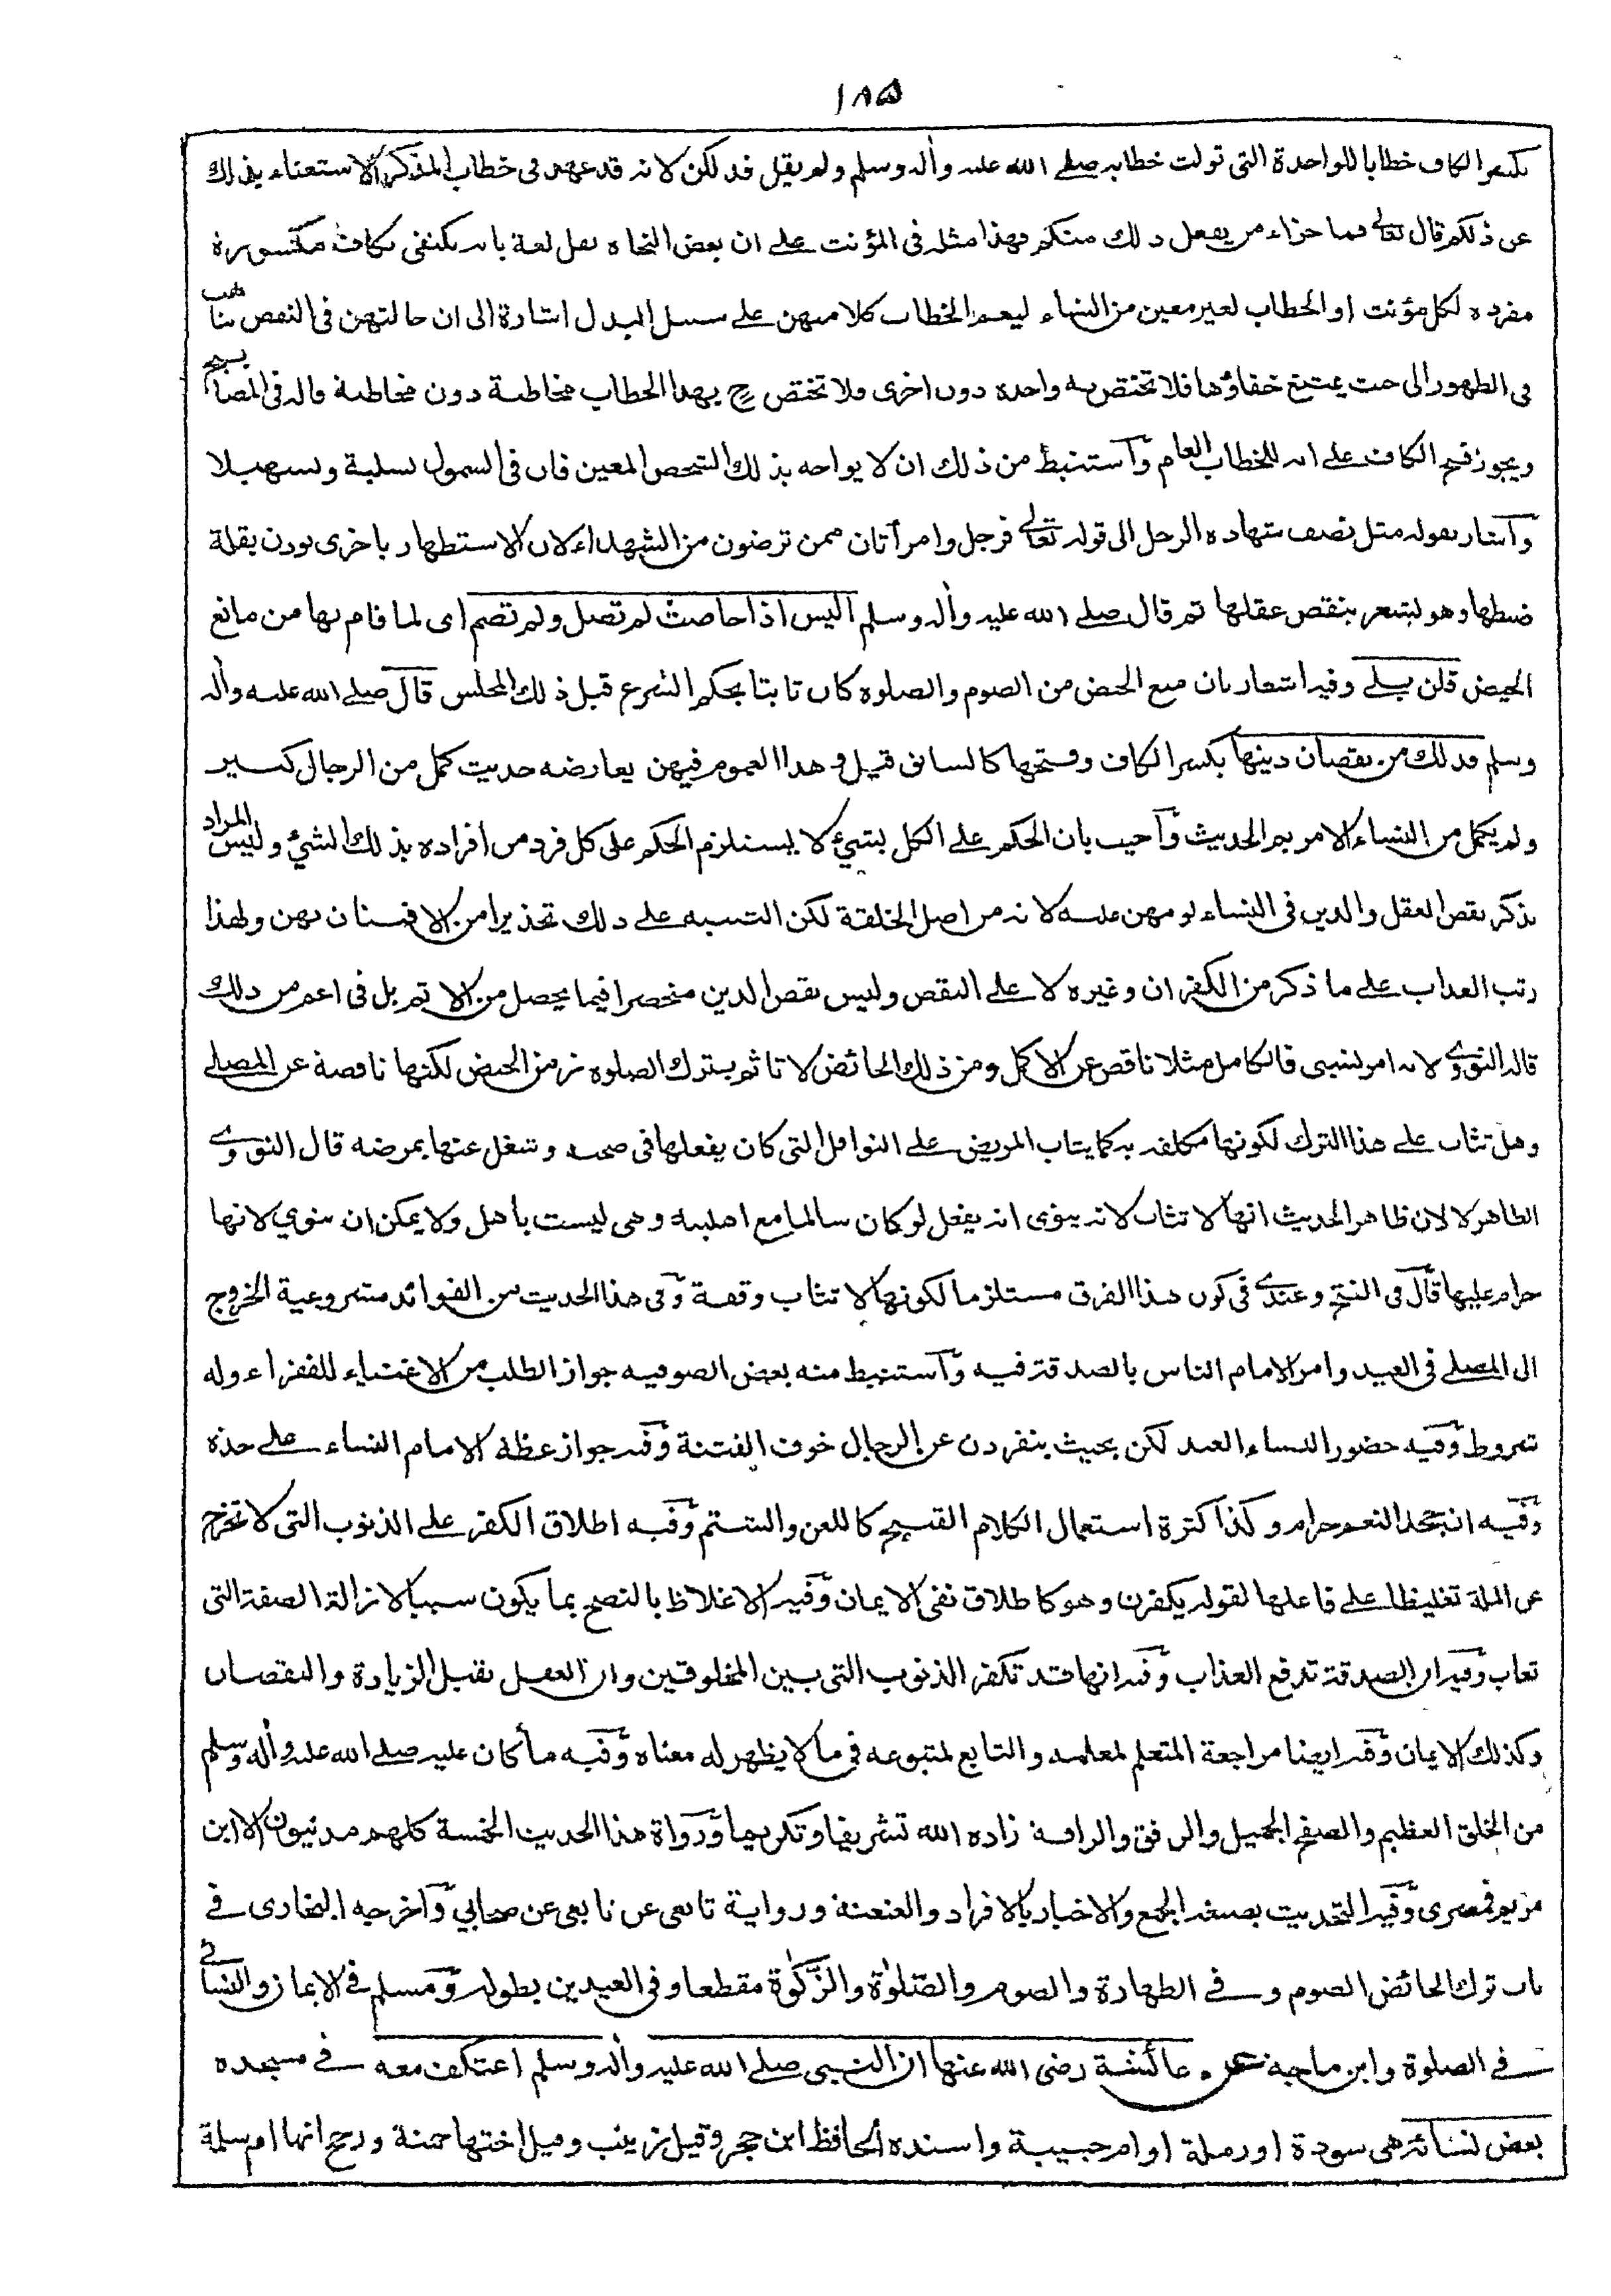 ١٨٥
بكسر الكاف خطابا للواحدة التى تولت خطابه صلى الله عليه وأله وسلم ولم يقل فذلكن لانه قد عهد فى خطاب المذكر الاستغناء بذلك
عن ذلكم قال تعالى فما جزاء من يفعل ذلك منكم فهذا مثله فى المؤنث على ان بعض النحاه نقل لغة بانه يكتفى بكاف مكسورة
مفرده لكل مؤنث او الخطاب لغير معين من النساء ليعم الخطاب كلا منهن على سبيل البدل اشارة الى ان حالتهن فى النقص تناهت
فى الظهور الى حيث يمتنع خفاؤها فلا تختص به واحده دون اخرى ولا تختص ح بهذا الخطاب مخاطبة دون مخاطبة قاله فى المصابيح
ويجوز فتح الكاف على انه للخطاب العام وآستنبط من ذلك ان لا يواجه بذلك الشخص المعين فان فى الشمول تسلية وتسهيلا
وآشار بقوله مثل نصف شهادة الرجل الى قوله تعالى فرجل وامرأتان ممن ترضون من الشهداء لان الاستظهار باخرى يوذن بقلة
ضبطها وهو يشعر بنقص عقلها ثم قال صلى الله عليه وأله وسلم اليس اذا حاضت لم تصل ولم تصم اى لما قام بها من مانع
الحيض قلن بلى وفيه اشعار بان منع الحيض من الصوم والصلوة كان ثابتا بحكم الشرع قبل ذلك المجلس قال صلى الله عليه وأله
وسلم فذلك من نقصان دينها بكسر الكاف وفتحها كالسابق قيل وهذا العموم فيهن يعارضه حديث كمل من الرجال كثير
ولم يكمل من النساء الامريم الحديث وآجيب بان الحكم على الكل بشئ لا يستلزم الحكم على كل فرد من افراده بذلك الشئ وليس المراد
بذكر نقص العقل والدين فى النساء لومهن عليه لانه من اصل الخلقة لكن التنبيه على ذلك تحذيرا من الافتتان بهن ولهذا
رتب العذاب على ما ذكر من الكفران وغيره لا على النقص وليس نقص الدين منحصرا فيما يحصل من الاثم بل فى اعم من ذلك
قاله النووى لانه امر نسبى فالكامل مثلا ناقص عن الاكمل ومن ذلك الحائض لا تاثم بترك الصلوة زمن الحيض لكنها ناقصة عن المصلى
وهل تثاب على هذا الترك لكونها مكلفه به كما يثاب المريض على النوافل التى كان يفعلها فى صحته وشغل عنها بمرضه قال النووى
الظاهر لا لان ظاهر الحديث انها لا تثاب لانه ينوى انه يفعل لو كان سالما مع اهليته وهى ليست باهل ولا يمكن ان تنوى لانها
حرام عليها قال فى الفتح وعندى فى كون هذا الفرق مستلزما لكونها لا تثاب وقفة وفى هذا الحديث من الفوائد مشروعية الخروج
الى المصلى فى العيد وامر الامام الناس بالصدقة فيه وآستنبط منه بعض الصوفيه جواز الطلب من الاغنياء للفقراء وله
شروط وفيه حضور النساء العيد لكن بحيث ينفردن عن الرجال خوف الفتنة وفيه جواز عظة الامام النساء على حدة
وفيه ان جحد النعم حرام وكذا كثرة استعمال الكلام القبيح كاللعن والشتم وفيه اطلاق الكفر على الذنوب التى لا تخرج
عن الملة تغليظا على فاعلها لقوله يكفرن وهو كاطلاق نفى الايمان وفيه الاغلاظ بالنصح بما يكون سببا لازالة الصفة التى
تعاب وفيه ان الصدقة تدفع العذاب وفيه انها قد تكفر الذنوب التى بين المخلوقين وان العقل يقبل الزيادة والنقصان
وكذلك الايمان وفيه ايضا مراجعة المتعلم لمعلمه والتابع لمتبوعه فى ما لا يظهر له معناه وفيه ما كان عليه صلى الله عليه وأله وسلم
من الخلق العظيم والصفح الجميل والرفق والرافة زاده الله تشريفا وتكريما ورواة هذا الحديث الخمسة كلهم مدنيون الا ابن
مريم فمصرى وفيه التحديث بصيغه الجمع والاخبار بالافراد والعنعنة ورواية تابعى عن تابعى عن صحابي وآخرجه البخارى فى
باب ترك الحائض الصوم وفى الطهارة والصوم والصلوٰة والزكوٰة مقطعا وفى العيدين بطوله ومسلم فى الايمان والنسائى
فى الصلوة وابن ماجه عن عائشة رضى الله عنها ان النبى صلى الله عليه وأله وسلم اعتكف معه فى مسجده
بعض نسائه هى سودة او رملة او ام حبيبة واسنده الحافظ ابن حجر وقيل زينب وقيل اختها حمنة ورجح انها ام سلمة